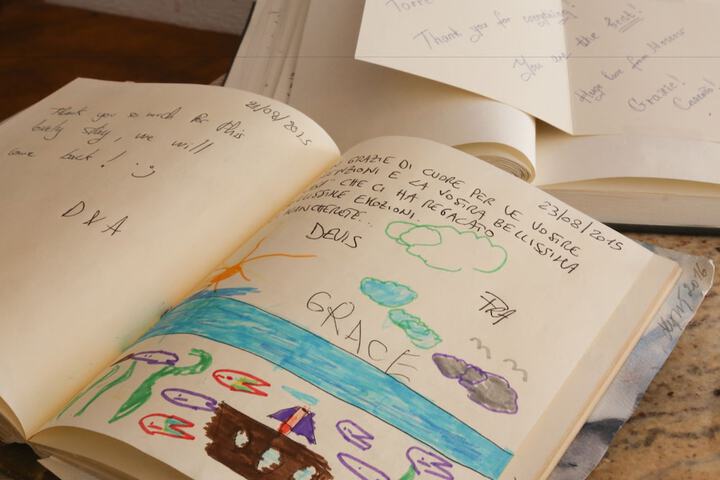 21/08/2015
Thank you so much for this
lovely stay, we will
come back! :-)
D & A
23/08/2015
GRAZIE DI CUORE PER LE VOSTRE
E LA VOSTRA BELLISSIMA
CHE CI HA REGALATO
EMOZIONI.
DEVIS
FRA
GRACE
Torre
Thank you for
You are the best!
Huge love from
Grazie!
2016